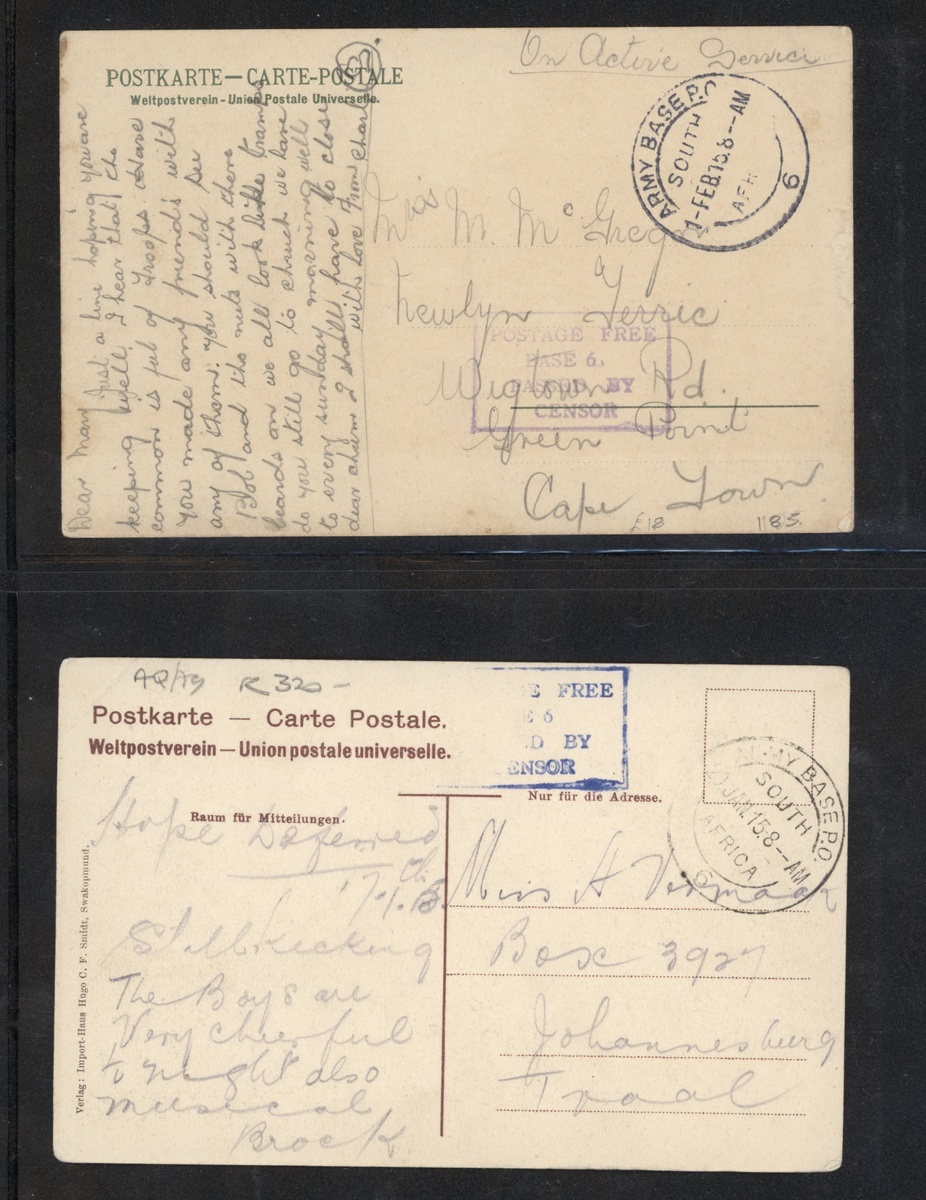 On Active Service
POSTKARTE — CARTE-POSTALE
Weltpostverein - Union Postale Universelle.
ARMY BASE P.O.
SOUTH
1-FEB.15.8--AM
AFR
6
Dear Mary Just a line hoping you are
keeping well. I hear that the
common is full of Troops. Have
you made any friends with
any of them. you should see
Bob and the nuts with there
beards on we all look like tramps
do you still go to chruch we have
to every sunday morning well
dear mam I shall have to close
with love From Charl
M. McGregor
Newlyn Terric
Wigtown Rd.
Green Point
Cape Town
POSTAGE FREE
BASE 6.
PASSED BY
CENSOR
£18
1185.
AQ/79 R320-
Postkarte — Carte Postale.
Weltpostverein — Union postale universelle.
E FREE
E 6
D BY
ENSOR
ARMY BASE P.O.
SOUTH
JAN.15.8--AM
AFRICA
6
Raum für Mitteilungen.
Nur für die Adresse.
Hope Deferred
17th
Still Kicking
The Boys are
Very cheerful
to night also
musical
Brock
Miss H Vermaak
Box 3927
Johannesburg
Tvaal
Verlag: Import-Haus Hugo C. F. Smidt, Swakopmund.